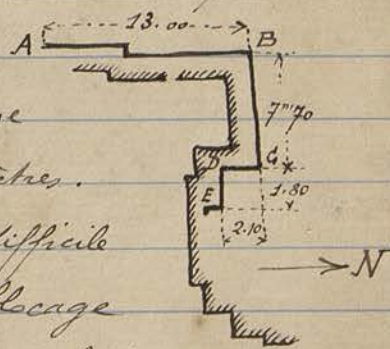 13.00
A B
7m70
D C
E 1.80
2.10
N
tres.
difficile
blocage